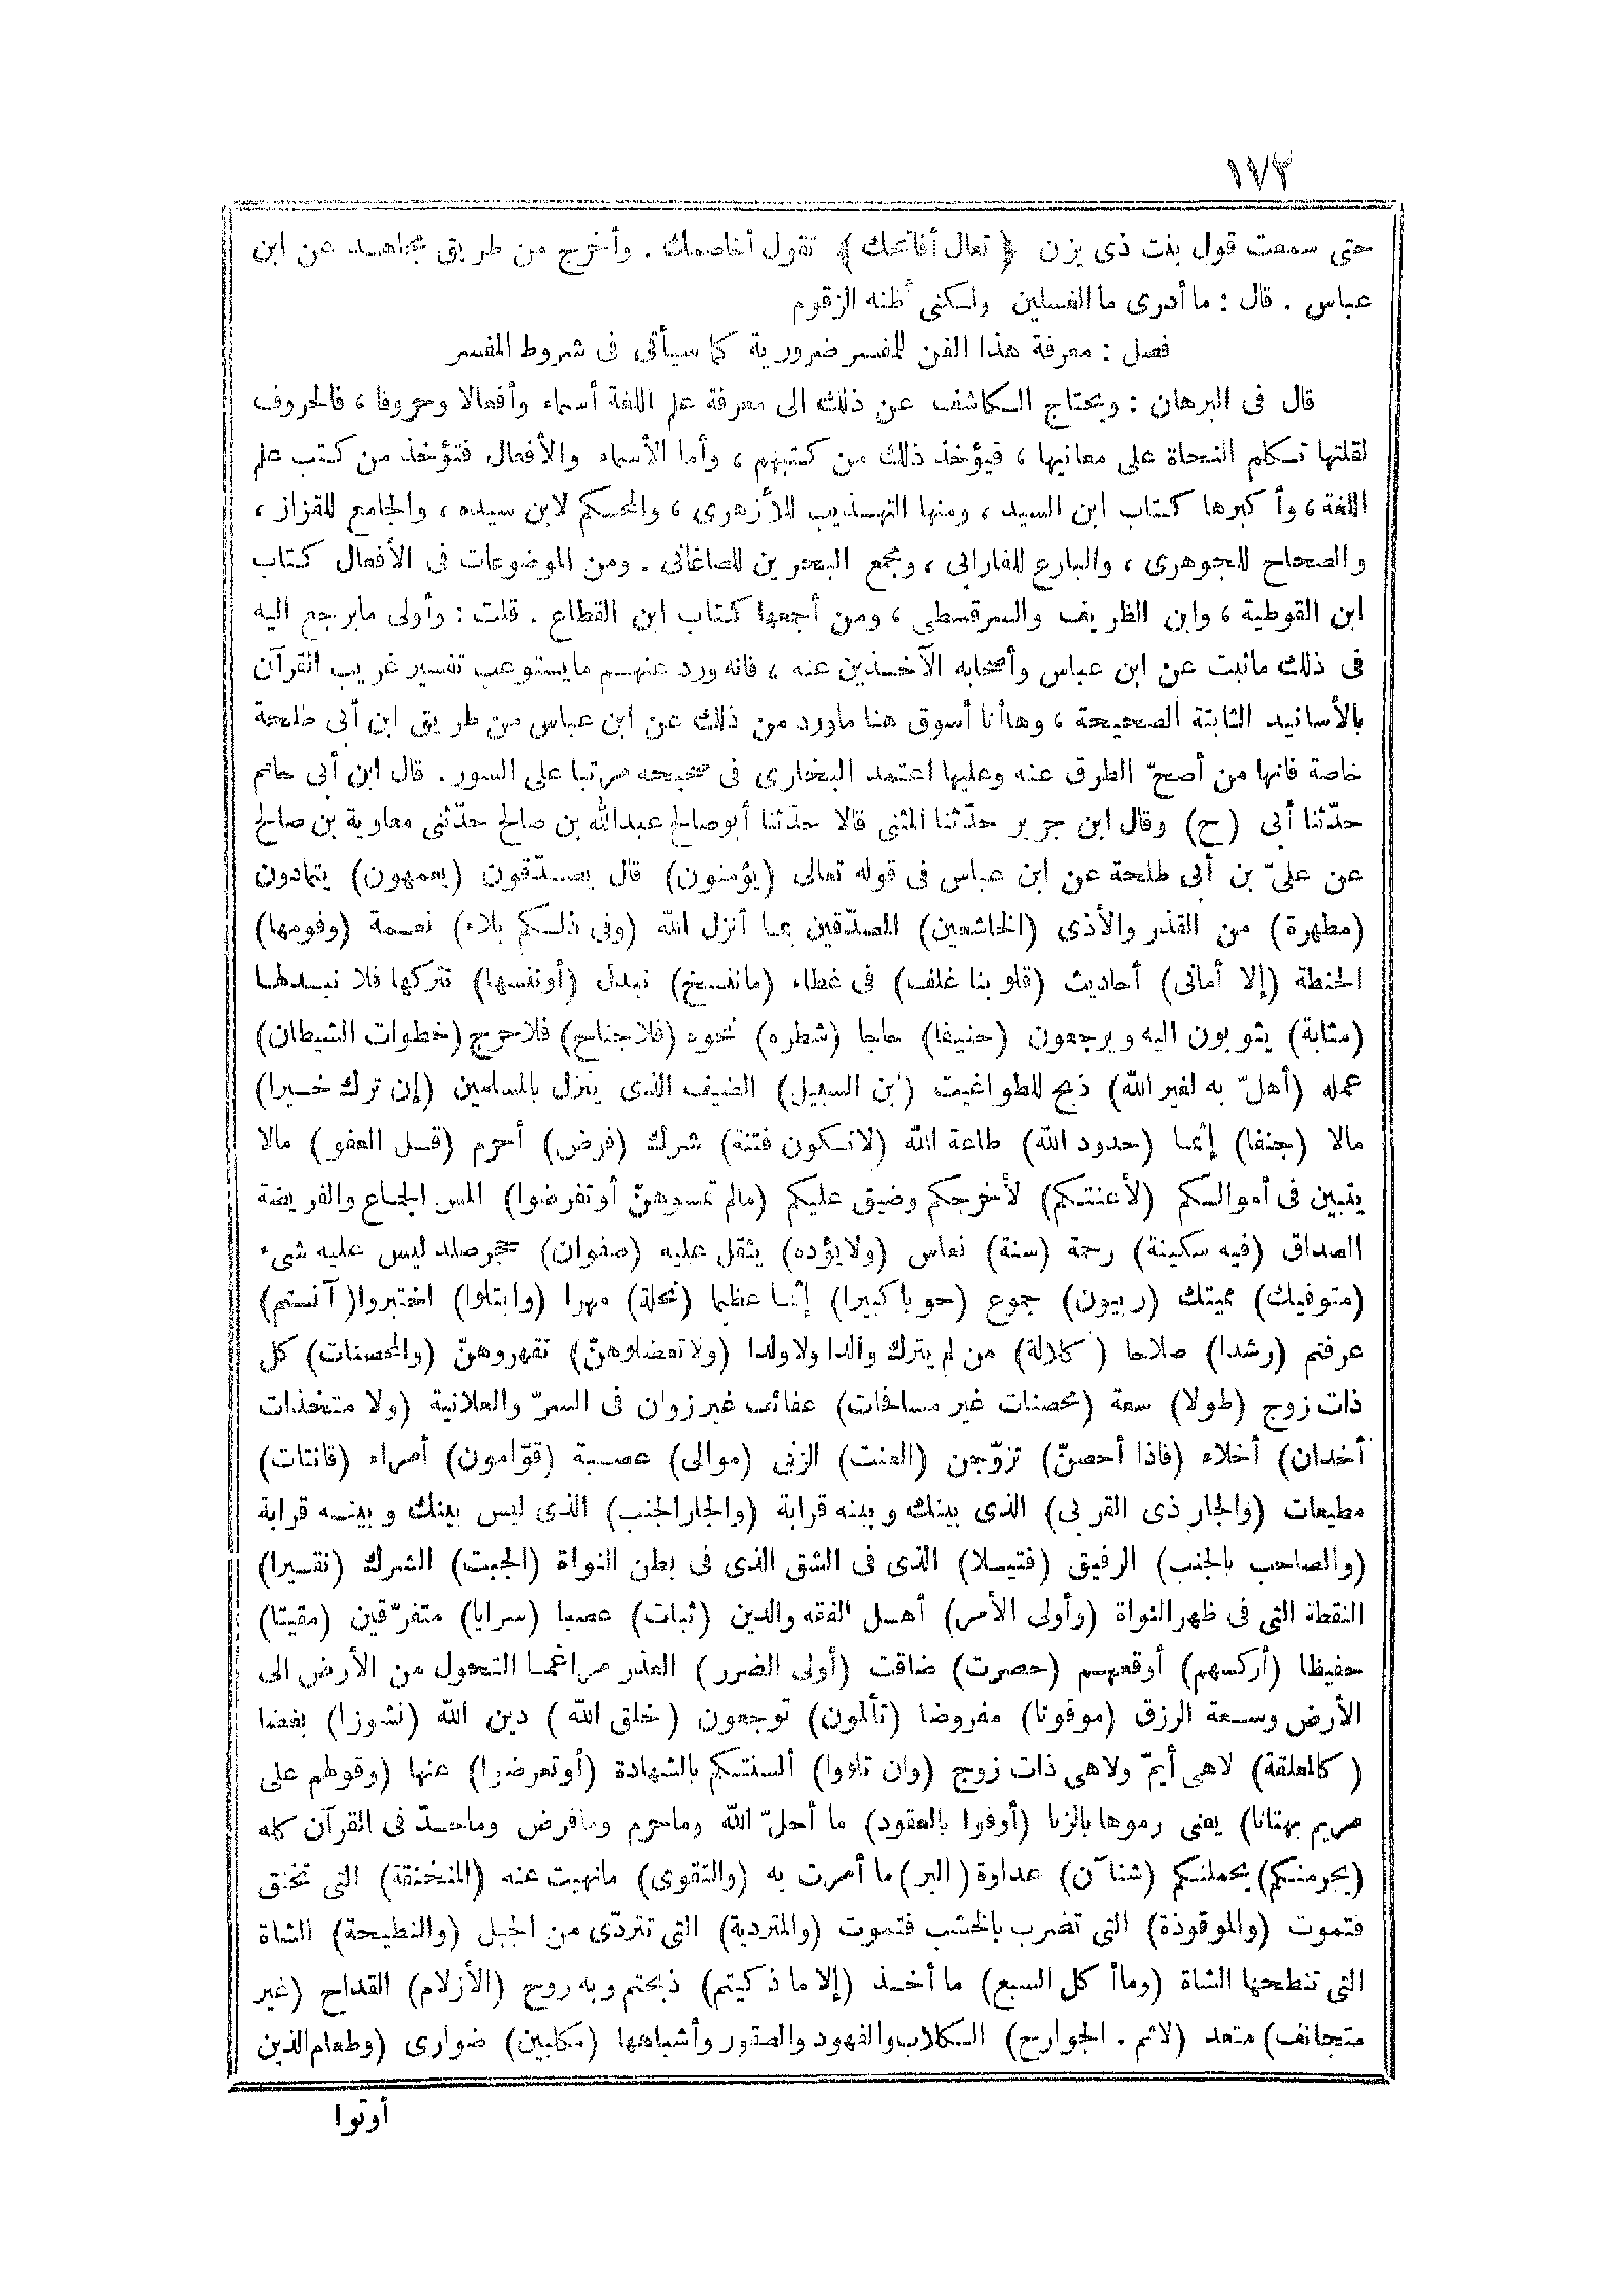 ١٧٣
حتى سمعت قول بنت ذى يزن ﴿ تعال أفاتحك ﴾ تقول أخاصمك . وأخرج من طريق مجاهد عن ابن
عباس . قال : ما أدرى ما الغسلين ولكنى أظنه الزقوم
فصل : معرفة هذا الفن للمفسر ضرورية كما سيأتى فى شروط المفسر
قال فى البرهان : ويحتاج الكاشف عن ذلك الى معرفة علم اللغة أسماء وأفعالا وحروفا ، فالحروف
لقلتها تكلم النحاة على معانيها ، فيؤخذ ذلك من كتبهم ، وأما الأسماء والأفعال فتؤخذ من كتب علم
اللغة ، وأكبرها كتاب ابن السيد ، ومنها التهذيب للأزهرى ، والمحكم لابن سيده ، والجامع للقزاز ،
والصحاح للجوهرى ، والبارع للفارابى ، ومجمع البحرين للصاغانى . ومن الموضوعات فى الأفعال كتاب
ابن القوطية ، وابن الظريف والسرقسطى ، ومن أجمعها كتاب ابن القطاع . قلت : وأولى مايرجع اليه
فى ذلك ماثبت عن ابن عباس وأصحابه الآخذين عنه ، فانه ورد عنهم مايستوعب تفسير غريب القرآن
بالأسانيد الثابتة الصحيحة ، وهاأنا أسوق هنا ماورد من ذلك عن ابن عباس من طريق ابن أبى طلحة
خاصة فانها من أصحّ الطرق عنه وعليها اعتمد البخارى فى صحيحه مرتبا على السور . قال ابن أبى حاتم
حدّثنا أبى (ح) وقال ابن جرير حدّثنا المثنى قالا حدّثنا أبوصالح عبدالله بن صالح حدّثنى معاوية بن صالح
عن علىّ بن أبى طلحة عن ابن عباس فى قوله تعالى (يؤمنون) قال يصدّقون (يعمهون) يتمادون
(مطهرة) من القذر والأذى (الخاشعين) المصدّقين بما أنزل الله (وفى ذلكم بلاء) نعمة (وفومها)
الحنطة (إلا أمانى) أحاديث (قلوبنا غلف) فى غطاء (ماننسخ) نبدل (أوننسها) نتركها فلا نبدلها
(مثابة) يثوبون اليه ويرجعون (حنيفا) حاجا (شطره) نحوه (فلاجناح) فلاحرج (خطوات الشيطان)
عمله (أهلّ به لغير الله) ذبح للطواغيت (ابن السبيل) الضيف الذى ينزل بالمسلمين (إن ترك خيرا)
مالا (جنفا) إثما (حدود الله) طاعة الله (لاتكون فتنة) شرك (فرض) أحرم (قل العفو) مالا
يتبين فى أموالكم (لأعنتكم) لأخرجكم وضيق عليكم (مالم تمسوهنّ أوتفرضوا) المس الجماع والفريضة
الصداق (فيه سكينة) رحمة (سنة) نعاس (ولايؤده) يثقل عليه (صفوان) حجر صلد ليس عليه شىء
(متوفيك) مميتك (ربيون) جموع (حوباكبيرا) إثما عظيما (نحلة) مهرا (وابتلوا) اختبروا (آنستم)
عرفتم (رشدا) صلاحا (كلالة) من لم يترك والدا ولاولدا (ولاتعضلوهنّ) تقهروهنّ (والمحصنات) كل
ذات زوج (طولا) سعة (محصنات غير مسافحات) عفائف غير زوان فى السرّ والعلانية (ولا متخذات
أخدان) أخلاء (فاذا أحصنّ) تزوّجن (العنت) الزنى (موالى) عصبة (قوّامون) أمراء (قانتات)
مطيعات (والجار ذى القربى) الذى بينك وبينه قرابة (والجارالجنب) الذى ليس بينك وبينه قرابة
(والصاحب بالجنب) الرفيق (فتيلا) الذى فى الشق الذى فى بطن النواة (الجبت) الشرك (نقيرا)
النقطة التى فى ظهرالنواة (وأولى الأمر) أهل الفقه والدين (ثبات) عصبا (سرايا) متفرّقين (مقيتا)
حفيظا (أركسهم) أوقعهم (حصرت) ضاقت (أولى الضرر) العذر مراغما التحول من الأرض الى
الأرض وسعة الرزق (موقوتا) مفروضا (تألمون) توجعون (خلق الله) دين الله (نشوزا) بغضا
(كالمعلقة) لاهى أيمّ ولاهى ذات زوج (وان تلووا) ألسنتكم بالشهادة (أوتعرضوا) عنها (وقولهم على
مريم بهتانا) يعنى رموها بالزنا (أوفوا بالعقود) ما أحلّ الله وماحرم ومافرض وماحدّ فى القرآن كله
(يجرمنكم) يحملنكم (شنآن) عداوة (البر) ما أمرت به (والتقوى) مانهيت عنه (المنخنقة) التى تخنق
فتموت (والموقوذة) التى تضرب بالخشب فتموت (والمتردية) التى تتردّى من الجبل (والنطيحة) الشاة
التى تنطحها الشاة (وماأكل السبع) ما أخذ (إلا ماذكيتم) ذبحتم وبه روح (الأزلام) القداح (غير
متجانف) متعد (لاثم . الجوارح) الكلاب والفهود والصقور وأشباهها (مكلبين) ضوارى (وطعام الذين
أوتوا